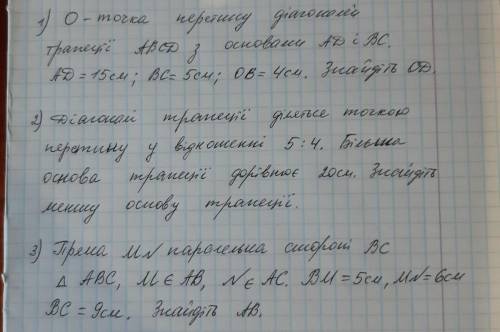 1) O - точка перетину діагоналей
трапеції ABCD з основами AD і BC.
AD = 15см; BC = 5см; OB = 4см. Знайдіть OD.
2) Діагоналі трапеції діляться точкою
перетину у відношенні 5:4. Більша
основа трапеції дорівнює 20см. Знайдіть
меншу основу трапеції.
3) Пряма MN паралельна стороні BC
△ ABC, M ∈ AB, N ∈ AC. BM = 5см, MN = 6см
BC = 9см. Знайдіть AB.